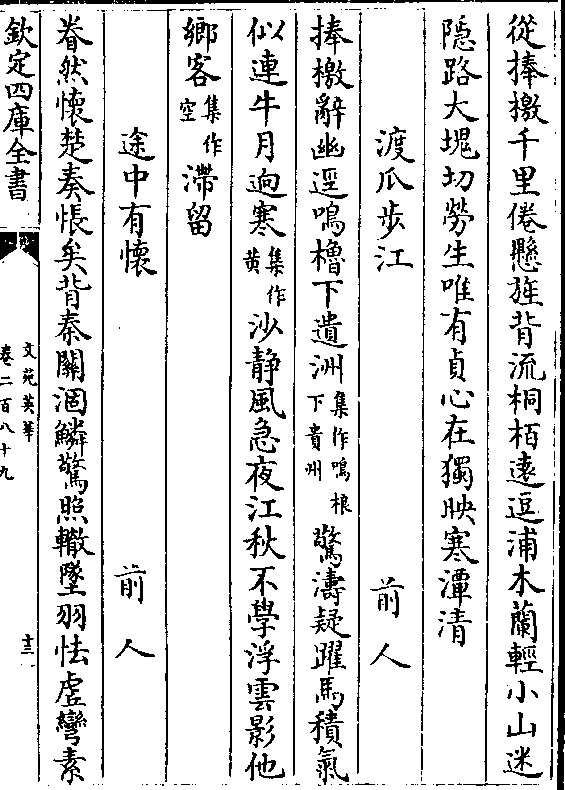 從捧檄千里倦懸旌背流桐栢遠逗浦木蘭輕小山迷
隱路大塊切勞生唯有貞心在獨映寒潭清
渡瓜步江　前人
捧檄辭幽逕鳴櫓下遺洲集作鳴榔下貴州驚濤疑躍馬積氣
似連牛月逈寒集作黄沙静風急夜江秋不學浮雲影他
鄉客集作空滯留
途中有懷　前人
眷然懷楚奏悵矣背秦關涸鱗驚照轍墜羽怯虚彎素
欽定四庫全書
文苑英華
卷二百八十九
十三